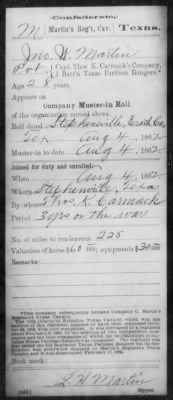 (Confederate.)
M Martin's Reg't, Cav. Texas.
Jno. W. Martin
Pvt, Capt. Thos. K. Carmack's Company,
1 Batt'n Texas Partisan Rangers.
Age 28 years.
Appears on
Company Muster-in Roll
of the organization named above.
Roll dated Stephenville, Erath Co,
Tex Aug 4, 1862.
Muster-in to date Aug 4, 1862.
Joined for duty and enrolled:
When Aug 4, 1862.
Where Stephenville, Texas
By whom Thos. K. Carmack
Period 3 yrs or the war
No. of miles to rendezvous 225
Valuation of horse $60 100; equipments $30 100
Remarks:
This company subsequently became Company G, Martin's
Regiment Texas Cavalry.
Book mark:
L H Martin
Copyist.